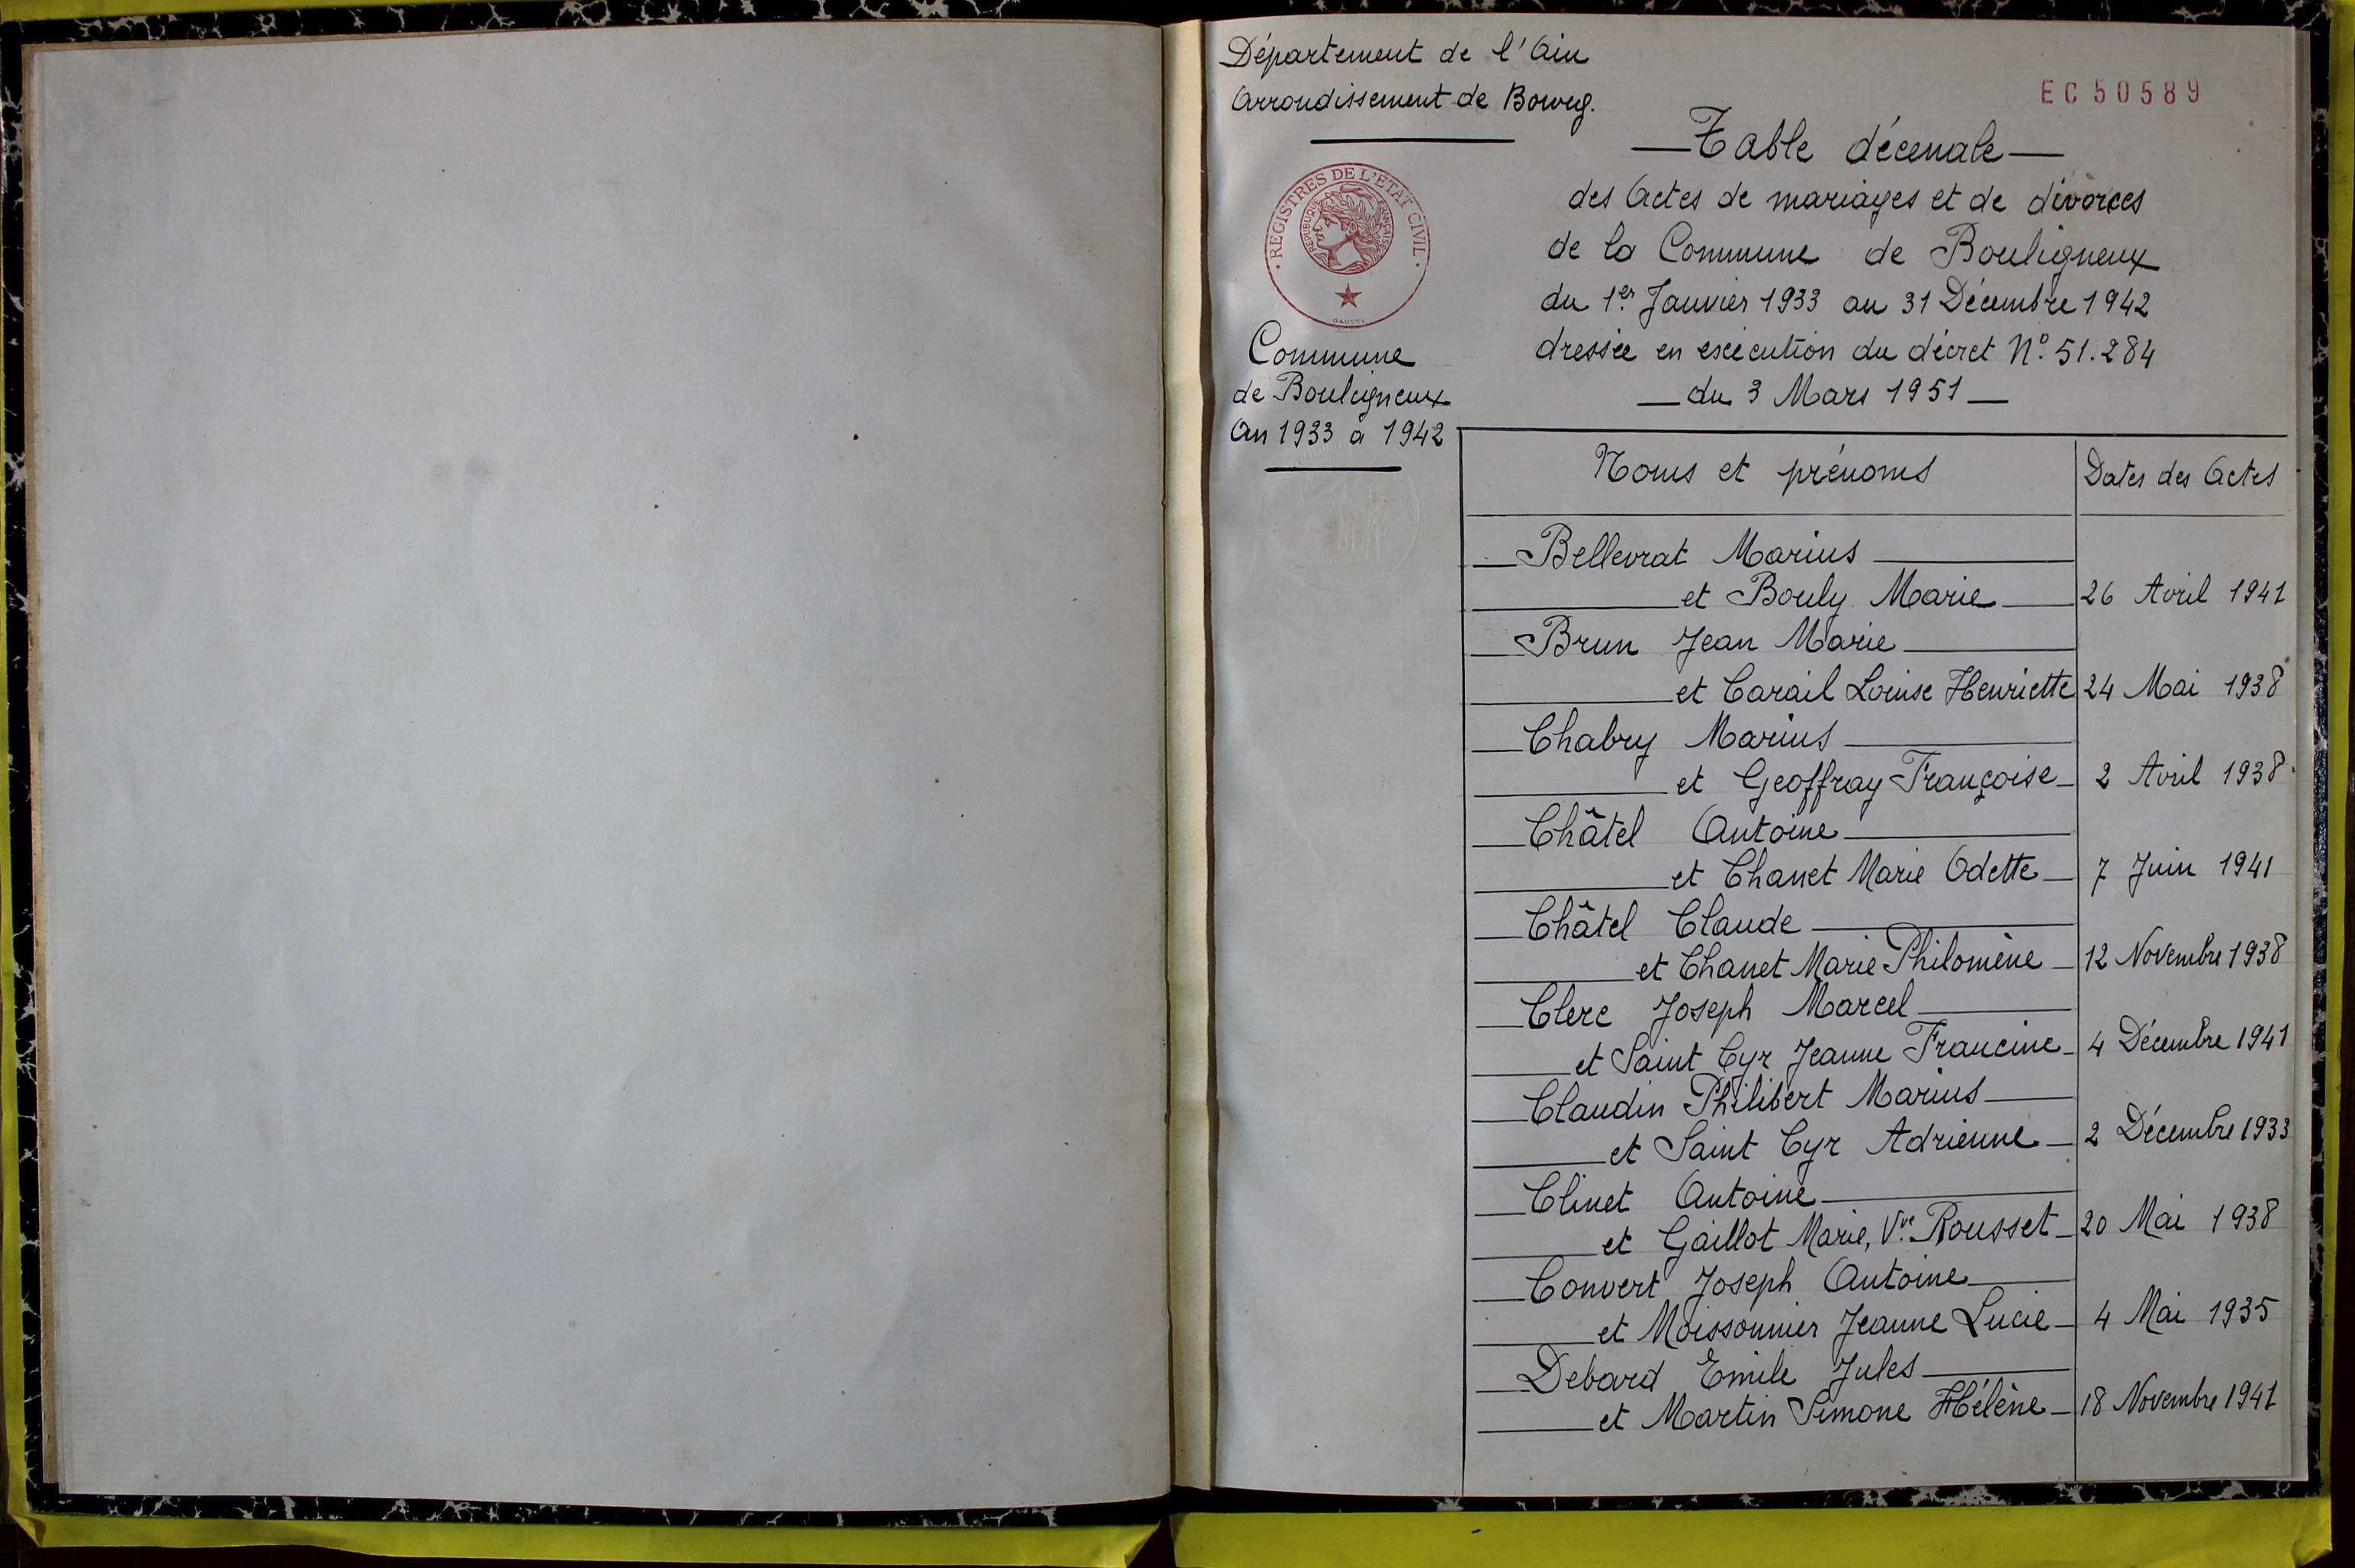 Département de l'Ain
Arrondissement de Bourg.
EC 50589
Table décenale
des Actes de mariages et de divorces
de la Commune de Bouligneux
du 1er Janvier 1933 au 31 Décembre 1942
dressée en exécution du décret N° 51.284
du 3 Mars 1951
REGISTRES DE L'ETAT CIVIL
REPUBLIQUE FRANÇAISE
Commune
de Bouligneux
An 1933 a 1942
Noms et prénoms Dates des Actes
Bellevrat Marius
et Bouly Marie 26 Avril 1941
Brun Jean Marie
et Carail Louise Henriette 24 Mai 1938
Chabry Marius
et Geoffray Françoise 2 Avril 1938
Châtel Antoine
et Chanet Marie Odette 7 Juin 1941
Châtel Claude
et Chanet Marie Philomène 12 Novembre 1938
Clerc Joseph Marcel
et Saint Cyr Jeanne Francine 4 Décembre 1941
Claudin Philibert Marius
et Saint Cyr Adrienne 2 Décembre 1933
Clinet Antoine
et Gaillot Marie, Vve Rousset 20 Mai 1938
Convert Joseph Antoine
et Moissonnier Jeanne Lucie 4 Mai 1935
Debard Emile Jules
et Martin Simone Hélène 18 Novembre 1941